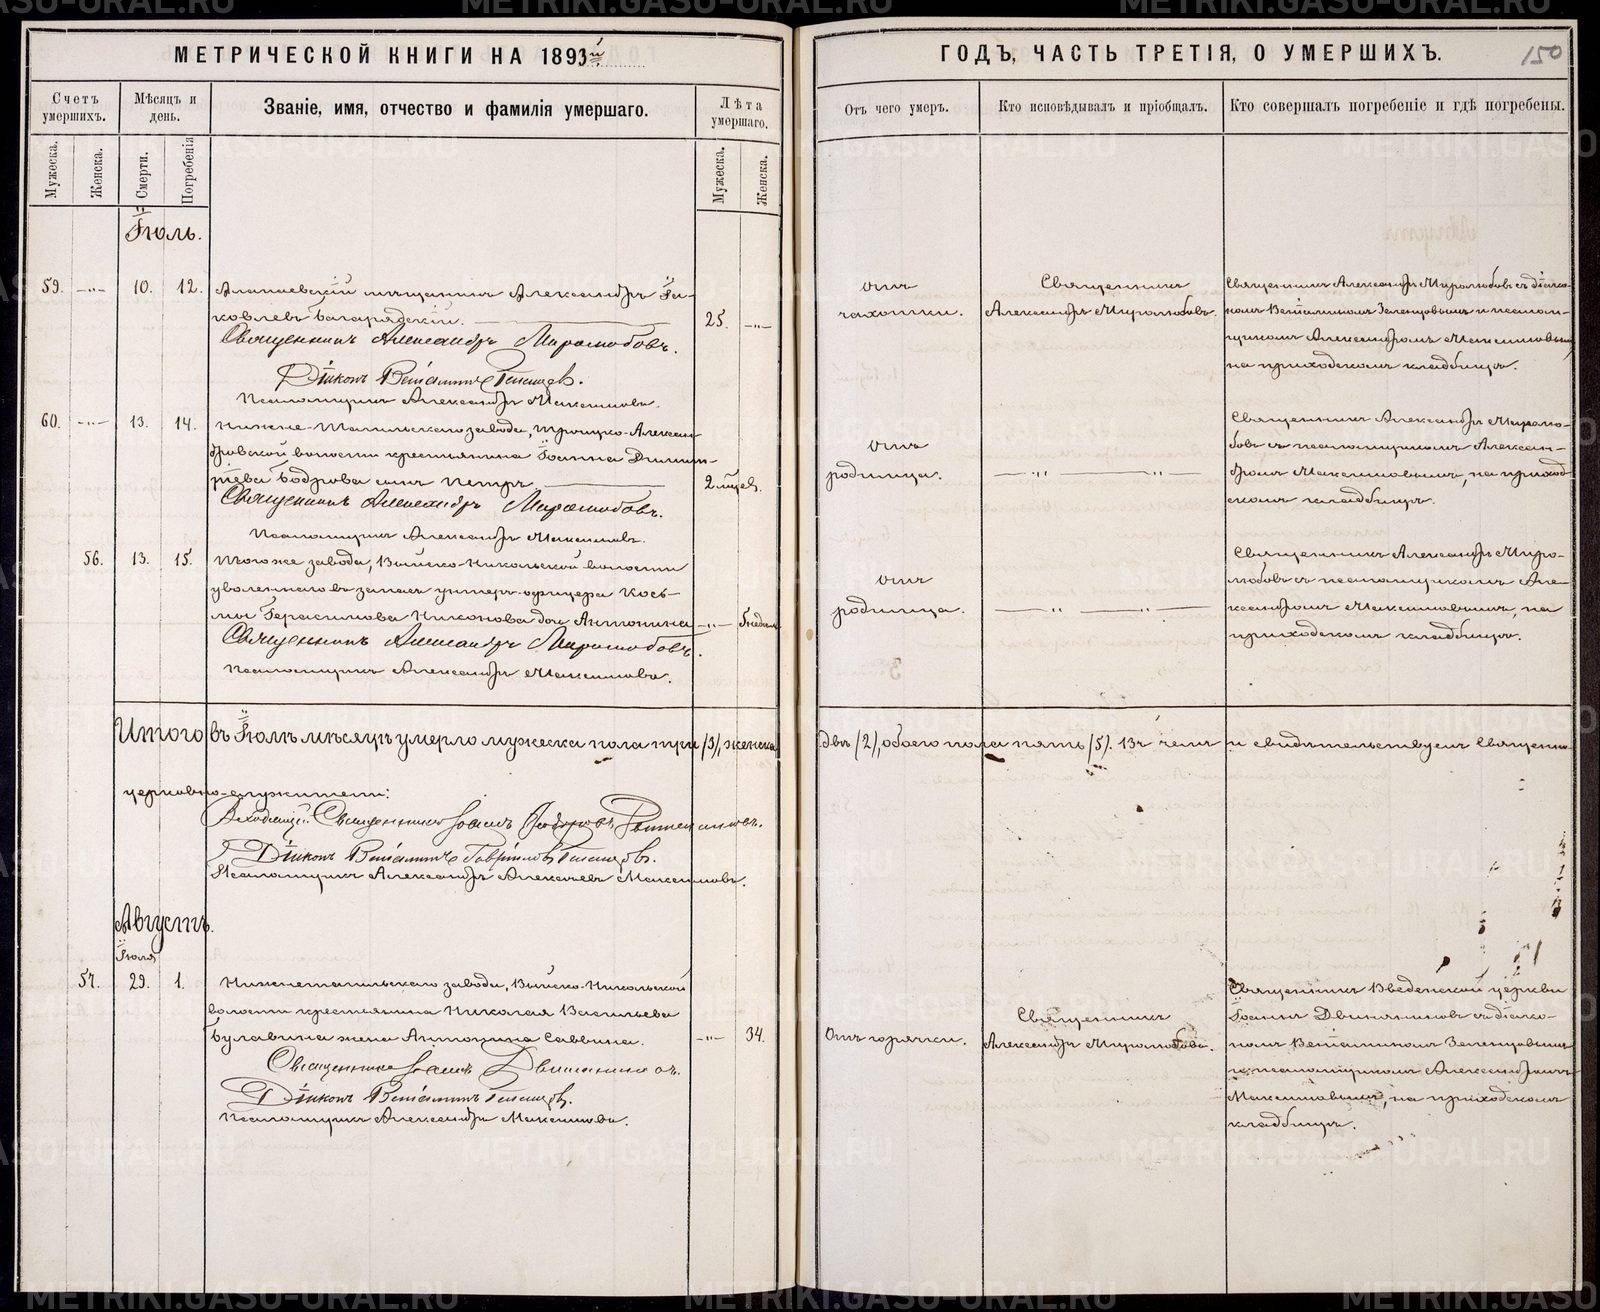 МЕТРИЧЕСКОЙ КНИГИ НА 1893й
ГОДЪ, ЧАСТЬ ТРЕТІЯ, О УМЕРШИХЪ.
150
Счетъ умершихъ.
Мѣсяцъ и день.
Званіе, имя, отчество и фамилія умершаго.
Лѣта умершаго.
Отъ чего умеръ.
Кто исповѣдывалъ и пріобщалъ.
Кто совершалъ погребеніе и гдѣ погребены.
Мужеска.
Женска.
Смерти.
Погребенія
Мужеска.
Женска.
Іюль.
59. -„- 10. 12.
Алапаевскій мѣщанинъ Александръ Іа-
ковлевъ Багарядскій.
25. -„-
Священникъ Александръ Миролюбовъ.
Діаконъ Веніаминъ Зеленцовъ.
Псаломщикъ Александръ Максимовъ.
отъ
чахотки.
Священникъ
Александръ Миролюбовъ.
Священникъ Александръ Миролюбовъ съ діако-
номъ Веніаминомъ Зеленцовымъ и псалом-
щикомъ Александромъ Максимовымъ,
на приходскомъ кладбищѣ.
60. -„- 13. 14.
Нижне-Тагильскаго завода, Троицко-Алексан-
дровской волости крестьянина Іоанна Димит-
ріева Бодрова сынъ Петръ.
2 мцев.
Священникъ Александръ Миролюбовъ.
Псаломщикъ Александръ Максимовъ.
отъ
родимца.
-„- -„-
Священникъ Александръ Миролю-
бовъ съ псаломщикомъ Алексан-
дромъ Максимовымъ, на приход-
скомъ кладбищѣ.
56. 13. 15.
Тогоже завода, Выйско-Никольской волости
уволеннаго въ запасъ унтеръ-офицера Кось-
мы Герасимова Никонова дочь Антонина
-„- 5 недѣль
Священникъ Александръ Миролюбовъ.
Псаломщикъ Александръ Максимовъ.
отъ
родимца.
-„- -„-
Священникъ Александръ Миро-
любовъ съ псаломщикомъ Але-
ксандромъ Максимовымъ, на
приходскомъ кладбищѣ.
Итого въ Іюлѣ мѣсяцѣ умерло мужеска пола три (3), женска
двѣ (2), обоего пола пять (5). Въ чемъ и свидѣтельствуемъ Священно-
церковно-служители:
Священникъ Іоаннъ
Діаконъ Веніаминъ Гавріиловъ Зеленцовъ.
Псаломщикъ Александръ Алексѣевъ Максимовъ.
Августъ.
Іюля
57. 29. 1.
Нижнетагильскаго завода, Выйско-Никольской
волости крестьянина Николая Васильева
Булавина жена Антонина Саввина.
-„- 34.
Священникъ Іоаннъ Двинянинов.
Діаконъ Веніаминъ Зеленцовъ.
Псаломщикъ Александръ Максимовъ.
Отъ горячки.
Священникъ
Александръ Миролюбовъ.
Священникъ Введенской церкви
Іоаннъ Двинянинов съ діако-
номъ Веніаминомъ Зеленцовымъ
и псаломщикомъ Александромъ
Максимовымъ, на приходскомъ
кладбищѣ.
METRIKI.GASO-URAL.RU